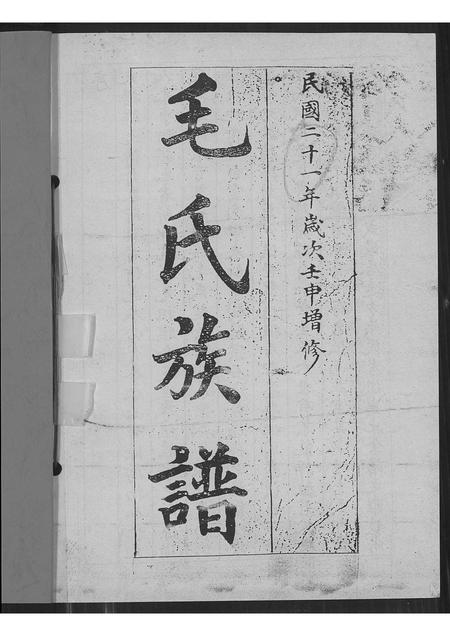 民國二十一年歲次壬申增修
毛氏族譜